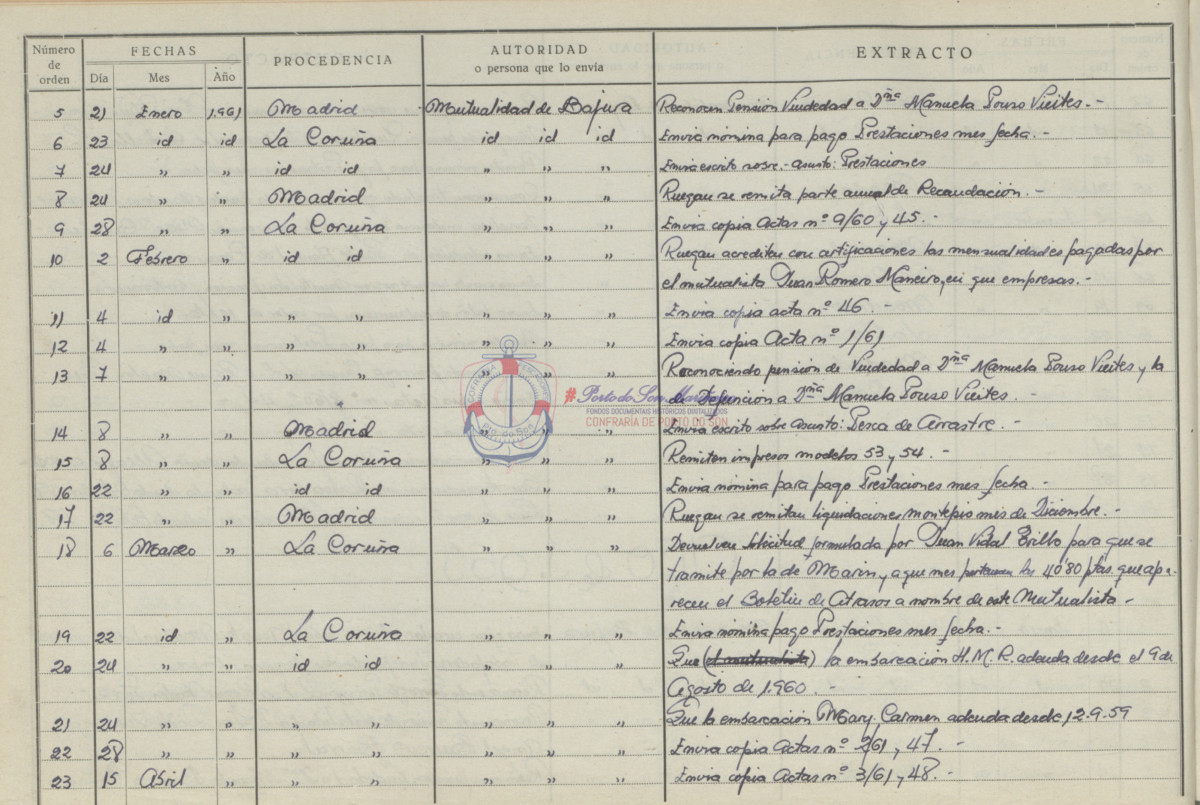 Número de orden FECHAS PROCEDENCIA AUTORIDAD o persona que lo envía EXTRACTO
Día Mes Año
5 21 Enero 1.961 Madrid Mutualidad de Bajura Reconocen Pensión Viudedad a Dña Manuela Pouso Vieites.-
6 23 id id La Coruña id id id Envia nómina para pago Prestaciones mes fecha.-
7 24 " " id id " " " Envia escrito sobre.- asunto: Prestaciones
8 24 " " Madrid " " " Ruegan se remita parte anual de Recaudación.-
9 28 " " La Coruña " " " Envia copia Actas nº 9/60 y 45.-
10 2 Febrero " id id " " " Ruegan acrediten con certificaciones las mensualidades pagadas por
el mutualista Juan Romero Maneiro, en que empresas.-
11 4 id " " " " " " Envia copia acta nº 46.-
12 4 " " " " " " " Envia copia Acta nº 1/61
13 7 " " " " " " " Reconociendo pensión de Viudedad a Dña Manuela Pouso Vieites y la
de Defunción a Dña Manuela Pouso Vieites.
14 8 " " Madrid " " " Envia escrito sobre asunto: Pesca de Arrastre.-
15 8 " " La Coruña " " " Remiten impresos modelos 53 y 54.-
16 22 " " id id " " " Envia nómina para pago Prestaciones mes fecha.-
17 22 " " Madrid " " " Ruegan se remitan liquidaciones montepio mes de Diciembre.-
18 6 Marzo " La Coruña " " " Devuelven Solicitud formulada por Juan Vidal para que se
tramite por la de Marin, y a que mes los 40'80 ptas. que apa-
recen el Boletin de Atrasos a nombre de este Mutualista-
19 22 id " La Coruña " " " Envia nómina pago Prestaciones mes fecha.-
20 24 " " id id " " " Que (el mutualista) la embarcación H.M.R. adeuda desde el 9 de
Agosto de 1.960.-
21 24 " " " " " " " Que la embarcación Mary-Carmen adeuda desde 12-9-59
22 28 " " " " " " " Envia copia Actas nº 2/61 y 47.-
23 15 Abril " " " " " " Envia copia Actas nº 3/61 y 48.-
#Porto do Son
FONDOS DOCUMENTAIS HISTÓRICOS DIXITALIZADOS
CONFRARIA DE PORTO DO SON